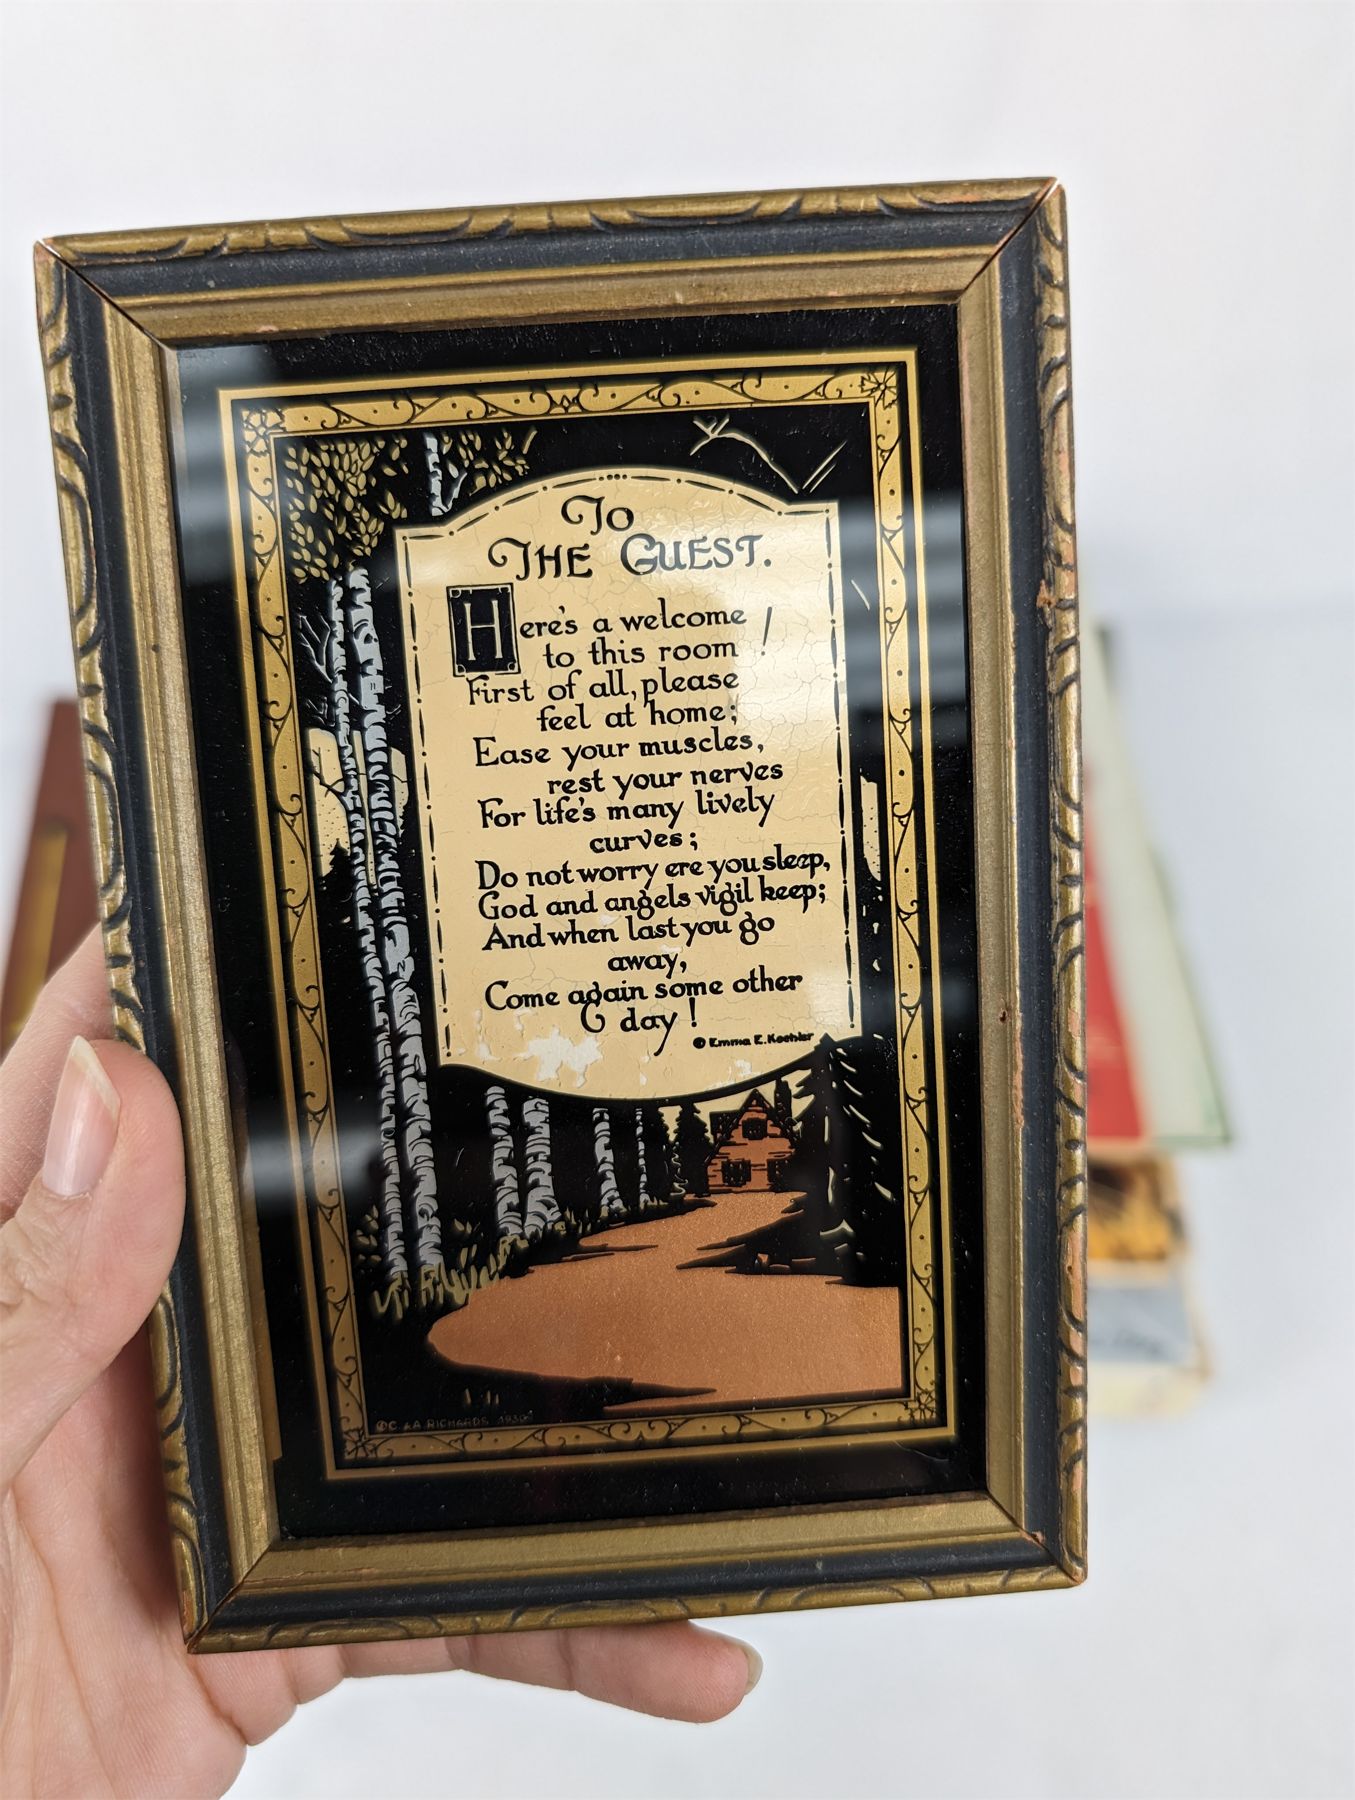 To
THE GUEST.
Here's a welcome
to this room!
First of all, please
feel at home;
Ease your muscles,
rest your nerves
For life's many lively
curves;
Do not worry ere you sleep,
God and angels vigil keep;
And when last you go
away,
Come again some other
day!
© Emma E. Koehler
©C. & A. RICHARDS 1930